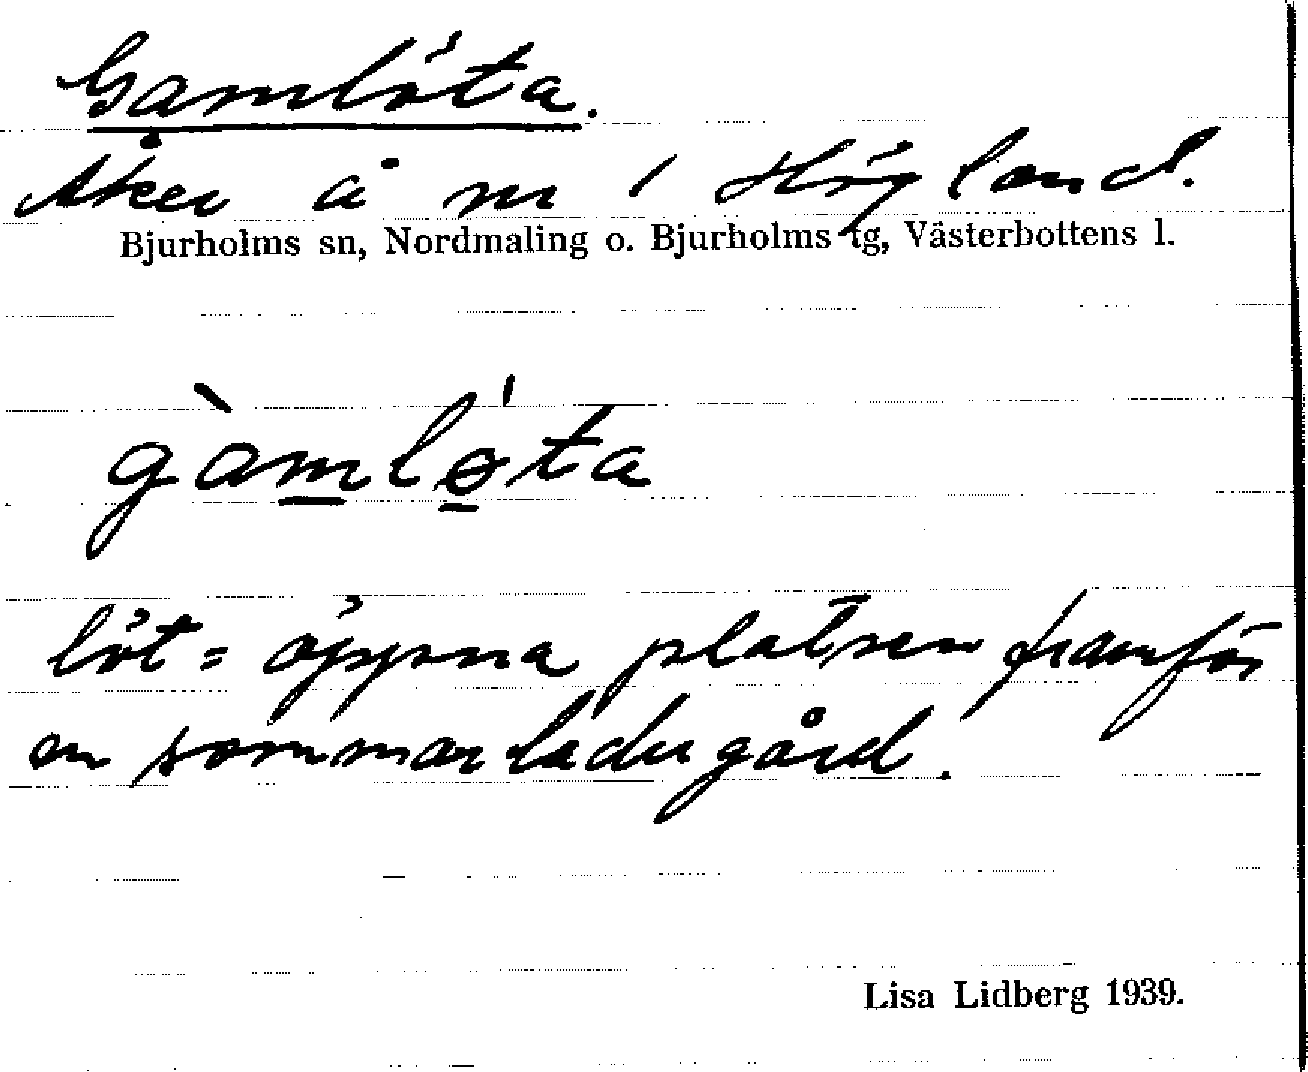 Gamlöta.
Åker å nr 1 Högland.
Bjurholms sn, Nordmaling o. Bjurholms tg, Västerbottens l.
gàmlǿ̱ta
löt = öppna platsen framför
en sommarladugård.
Lisa Lidberg 1939.